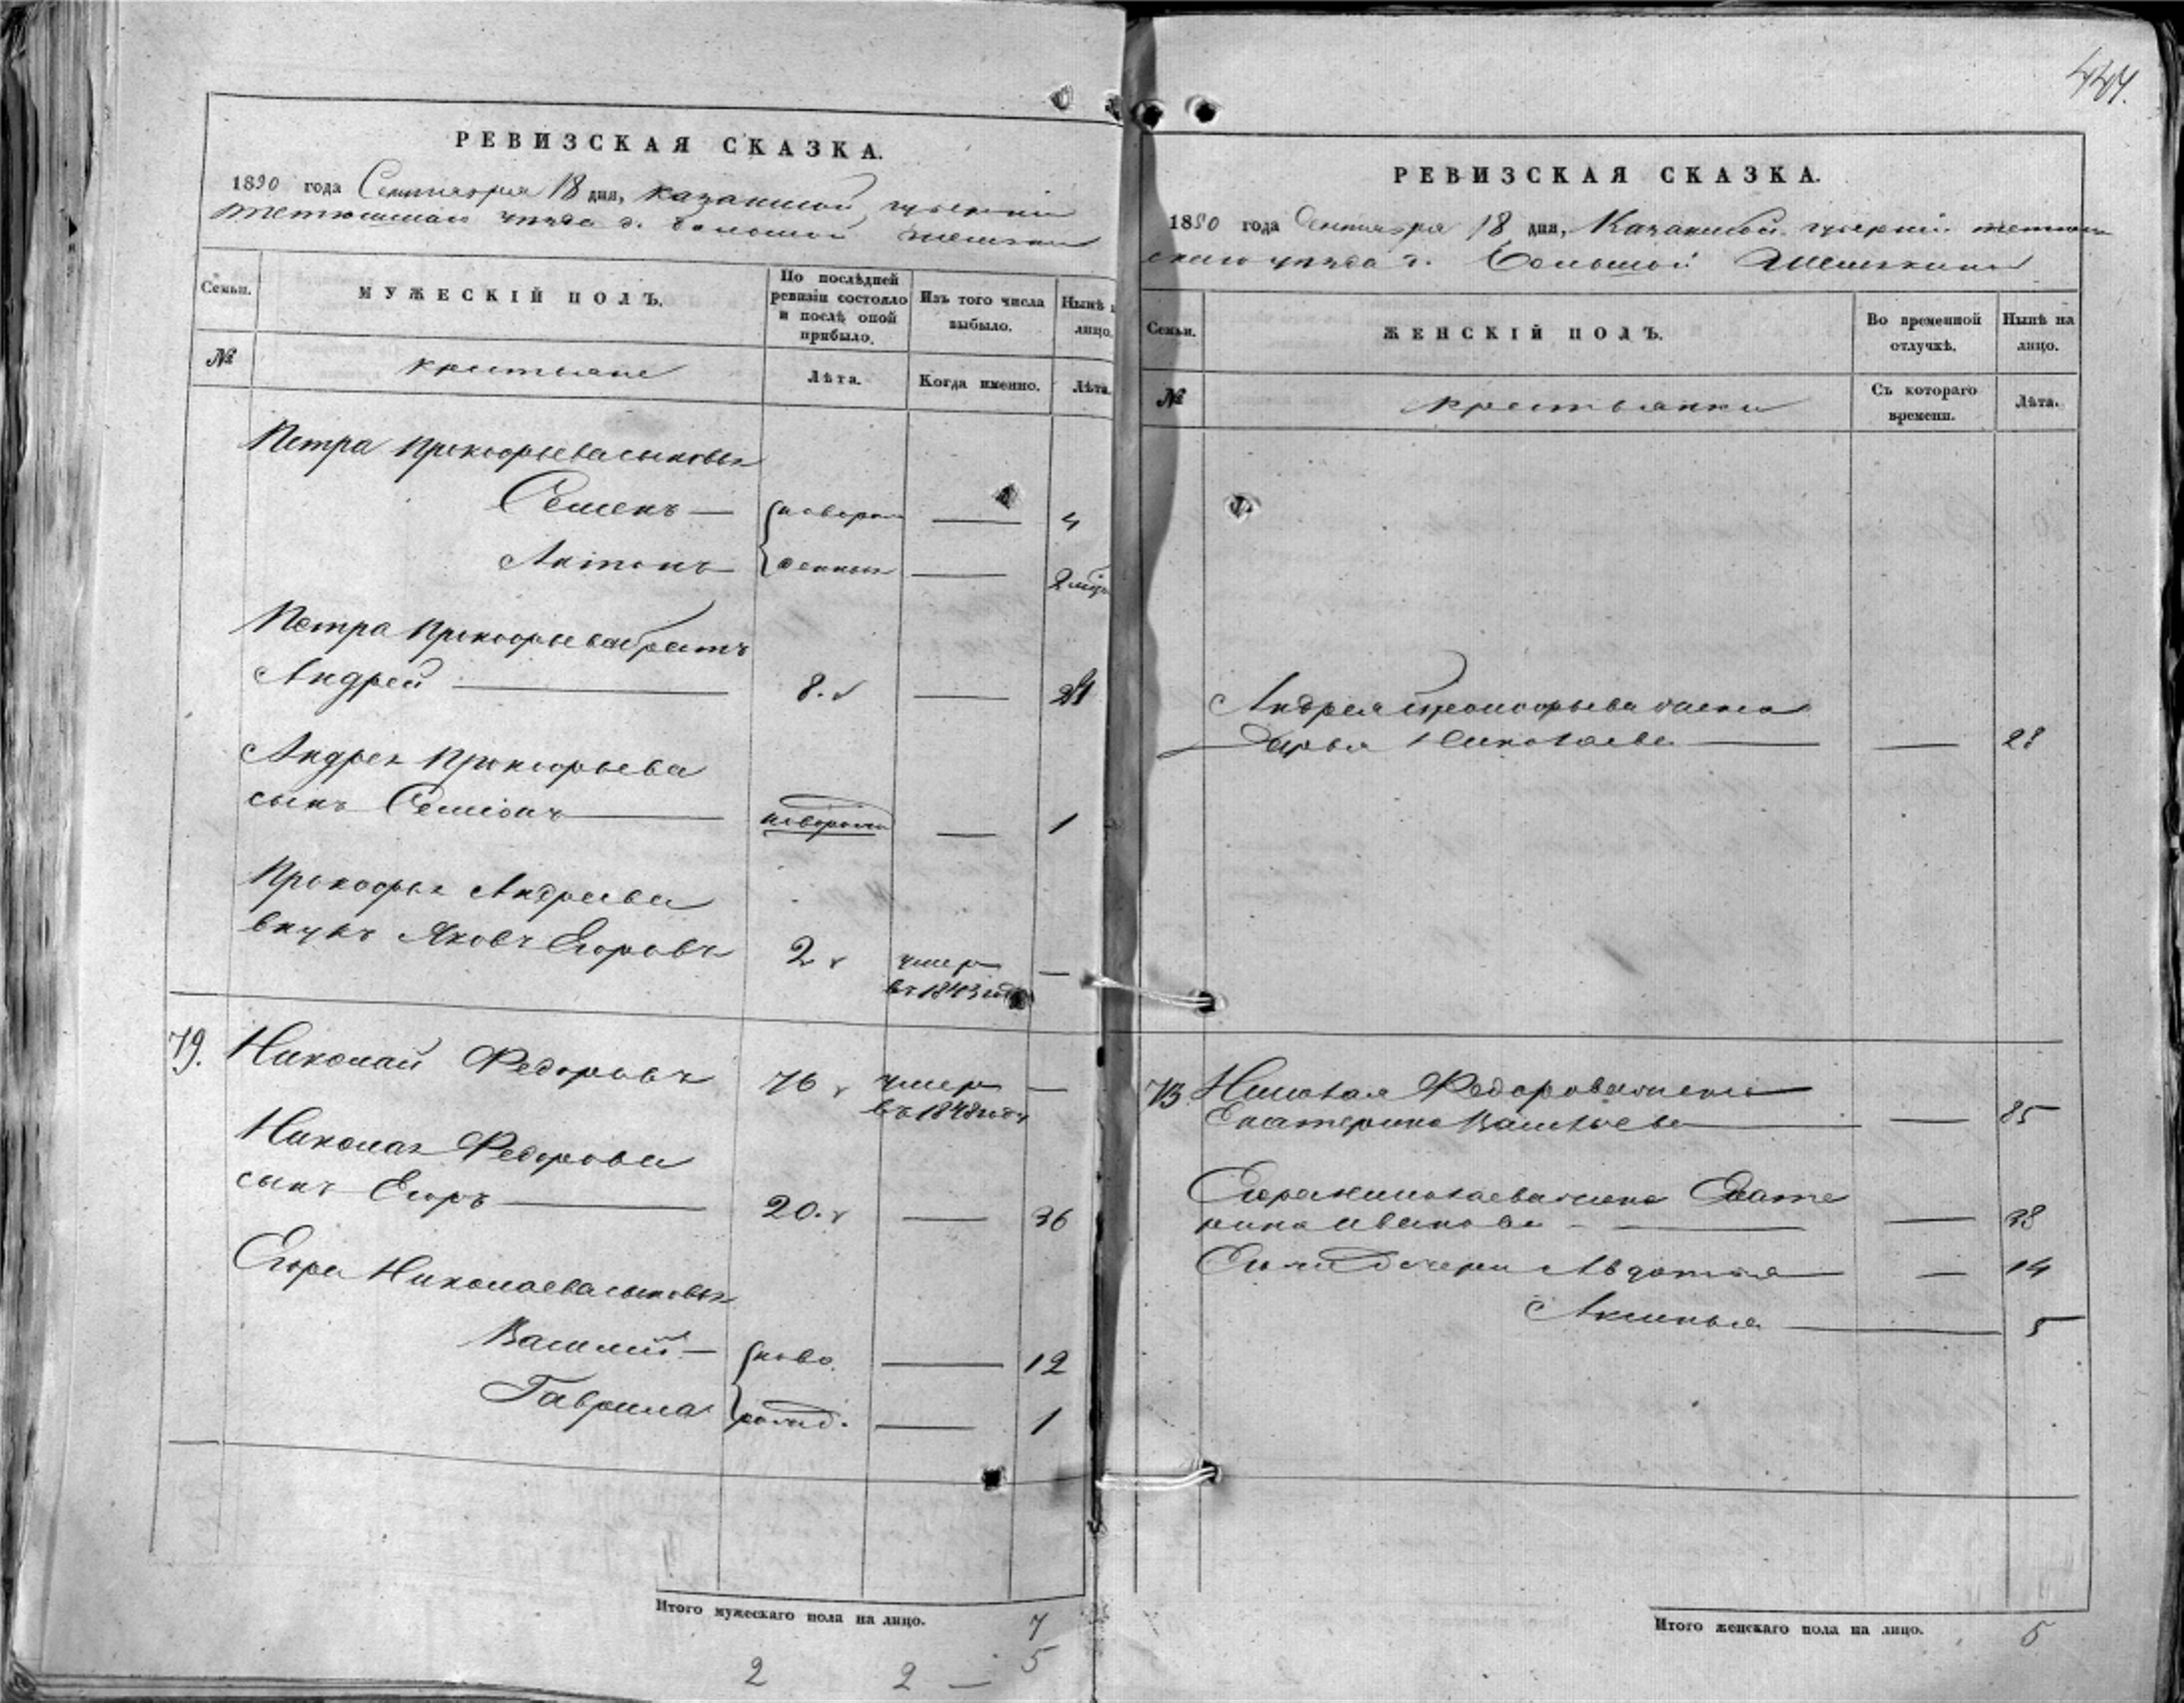 РЕВИЗСКАЯ СКАЗКА.
1850 года Сентября 18 дня, Казанской губернии
Тетюшскаго уѣзда д. Большой
Семьи.
МУЖЕСКІЙ ПОЛЪ.
По послѣдней ревизіи состояло и послѣ оной прибыло.
Изъ того числа выбыло.
Нынѣ
лицо.
№
крестьяне
Лѣта.
Когда именно.
Лѣта.
Петра Прокофьева сыновья
Семенъ — новорож — 4
Антонъ — денныя — 2
Петра Прокофьева братъ
Андрей — 8. — 24
Андрея Прокофьева
сынъ Семіонъ — новорожд — 1
Прокофья Андреева
внукъ Яковъ Егоровъ 2 умер —
въ 1843 году
79. Николай Федоровъ 76 умер —
въ 1848 году
Николая Федорова
сынъ Егоръ — 20. — 36
Егора Николаева сыновья
Василий — ново. — 12
Гаврила рожд. — 1
Итого мужескаго пола на лицо. 7
2 2 — 5
447.
РЕВИЗСКАЯ СКАЗКА.
1850 года Сентября 18 дня, Казанской губернии Тетюш
скаго уѣзда д. Большой
Семьи.
ЖЕНСКІЙ ПОЛЪ.
Во временной отлучкѣ.
Нынѣ на лицо.
№
крестьянки
Съ котораго времени.
Лѣта.
Андрея Прокофьева жена
Дарья Николаева — — 28
79 Николая Федорова жена
Екатерина Васильева — — 85
Егора Николаева жена Екате
рина Иванова — — 38
Его дочери Авдотья — — 14
Аксинья — 5
Итого женскаго пола на лицо. 5